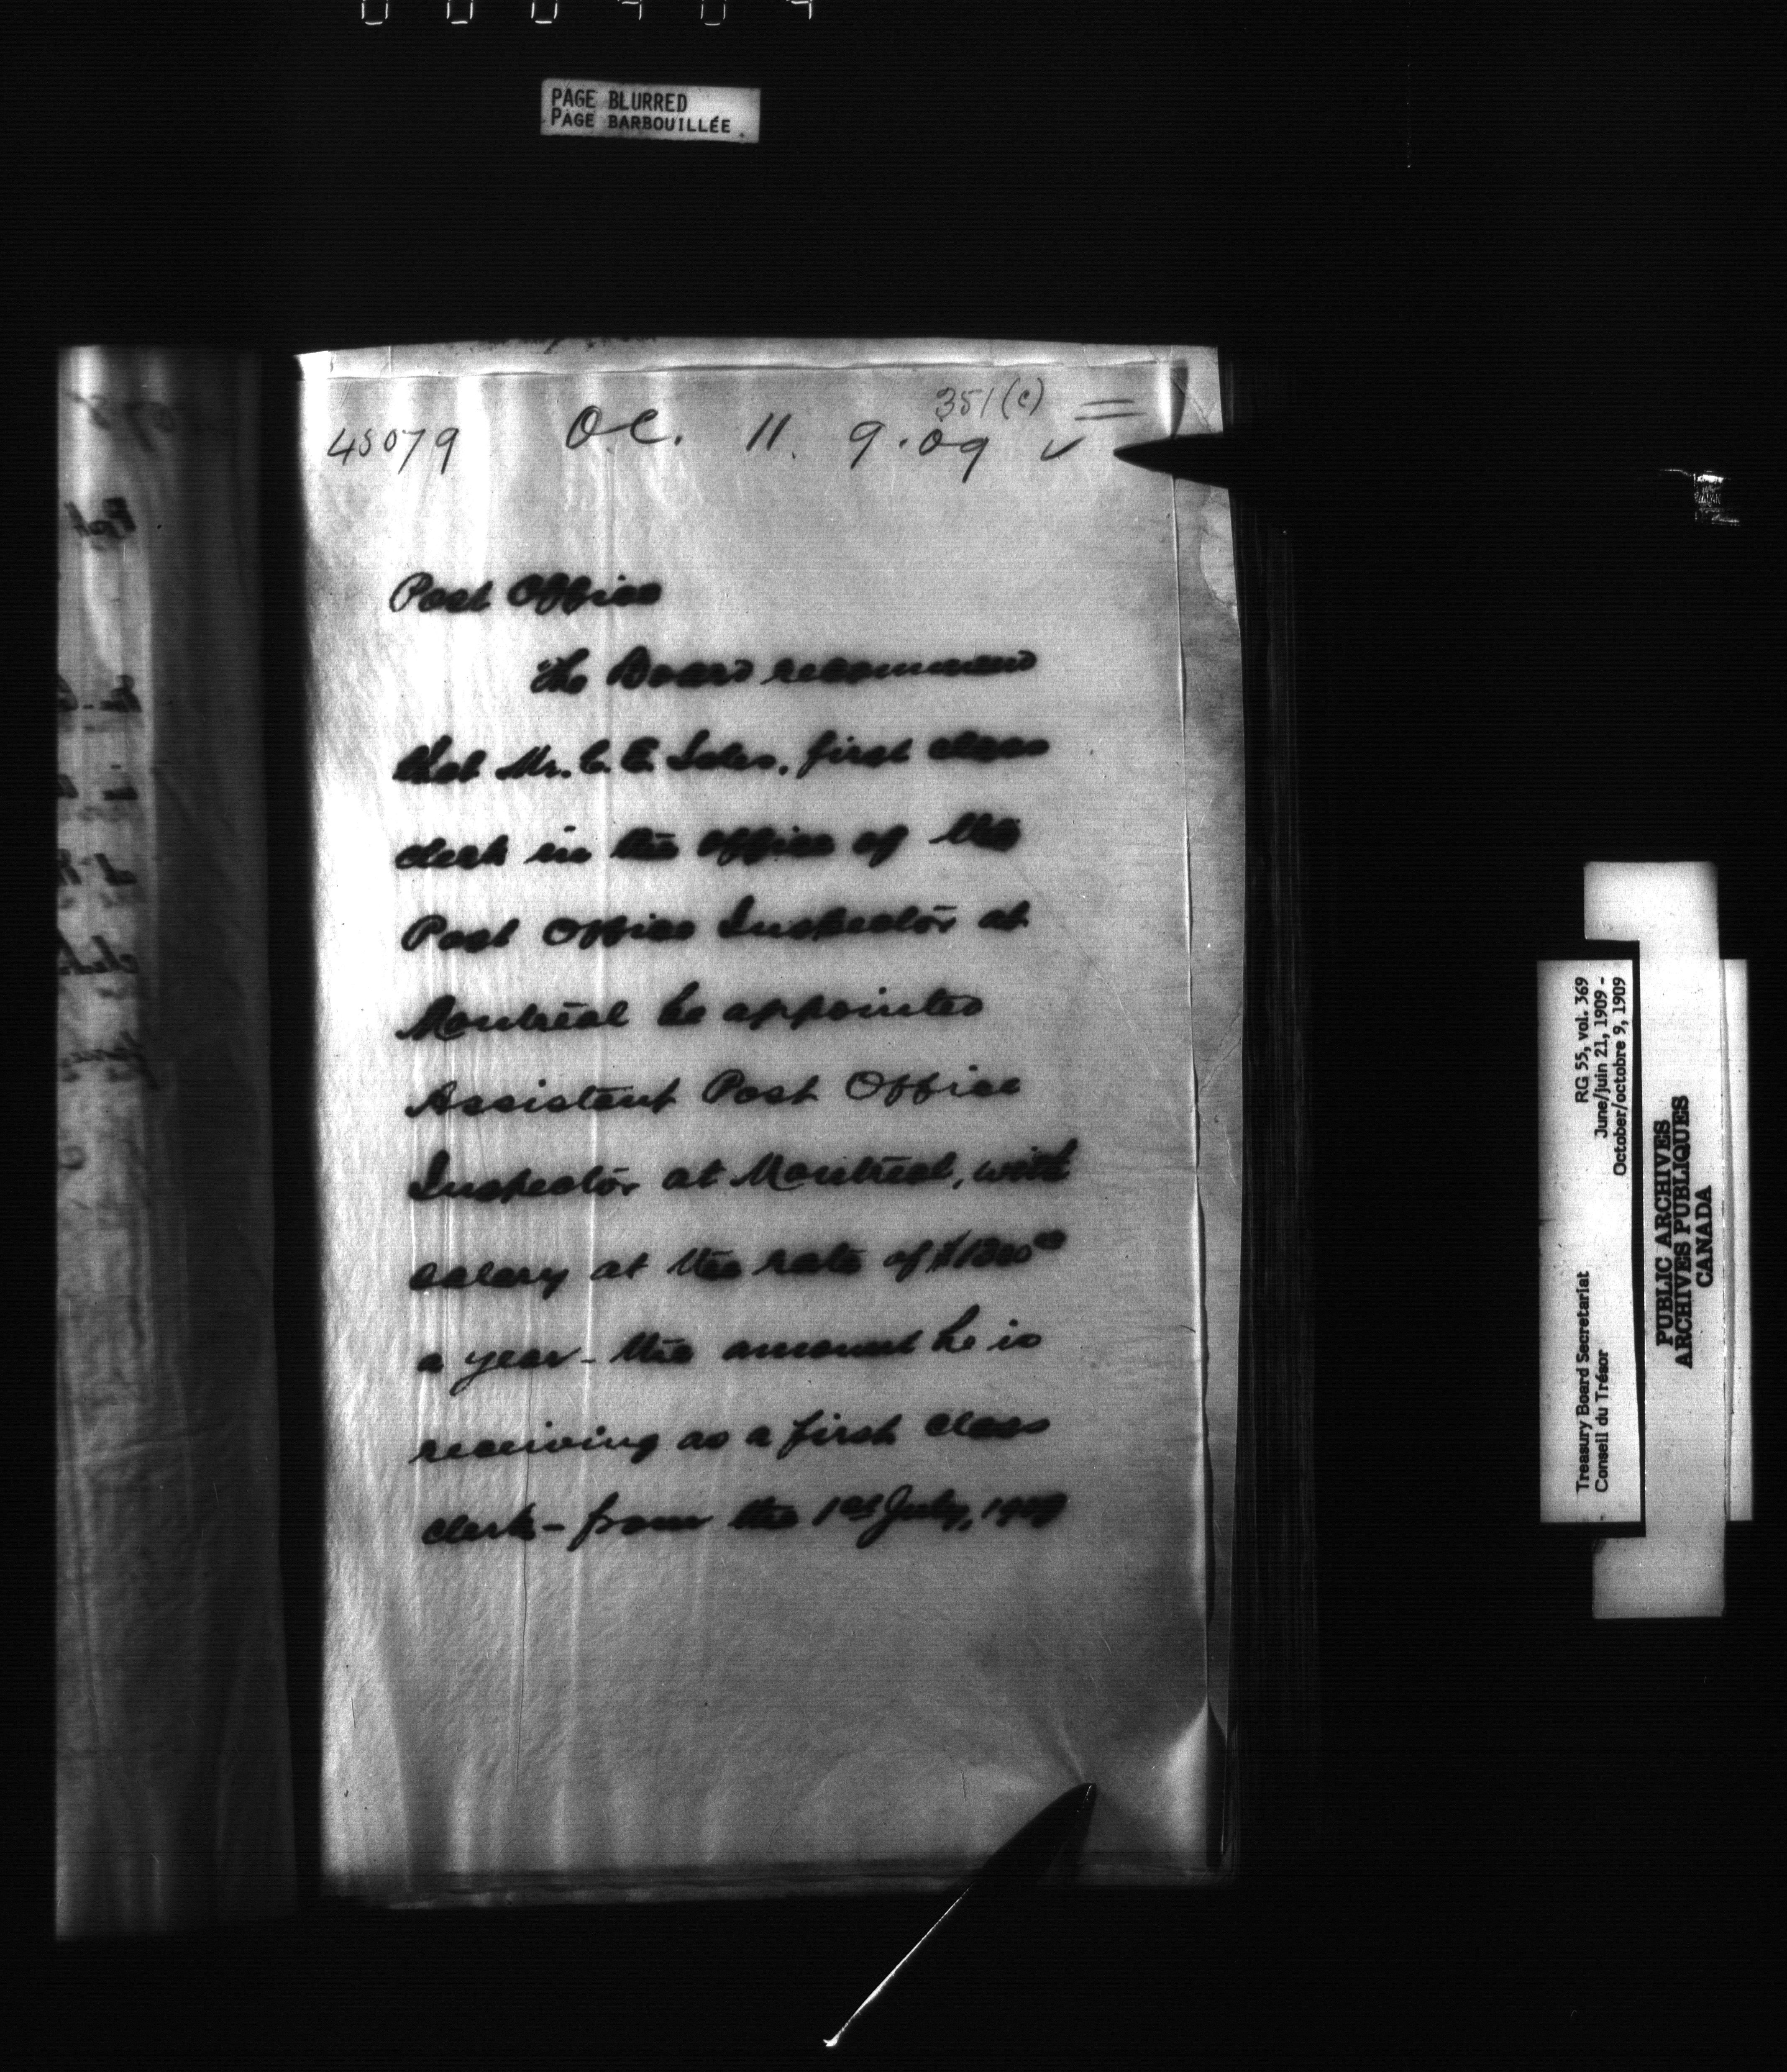 PAGE BLURRED
PAGE BARBOUILLÉE
351(c)
45079 OC. 11. 9.09 ✓
Post Office
The Board recommend
that Mr. C. E. Soles, first class
clerk in the office of the
Post Office Inspector at
Montreal be appointed
Assistant Post Office
Inspector at Montreal, with
salary at the rate of $1300
a year - the amount he is
receiving as a first class
clerk - from the 1st July, 1909
Treasury Board Secretariat RG 55, vol. 369
Conseil du Trésor June/juin 21, 1909 -
October/octobre 9, 1909
PUBLIC ARCHIVES
ARCHIVES PUBLIQUES
CANADA